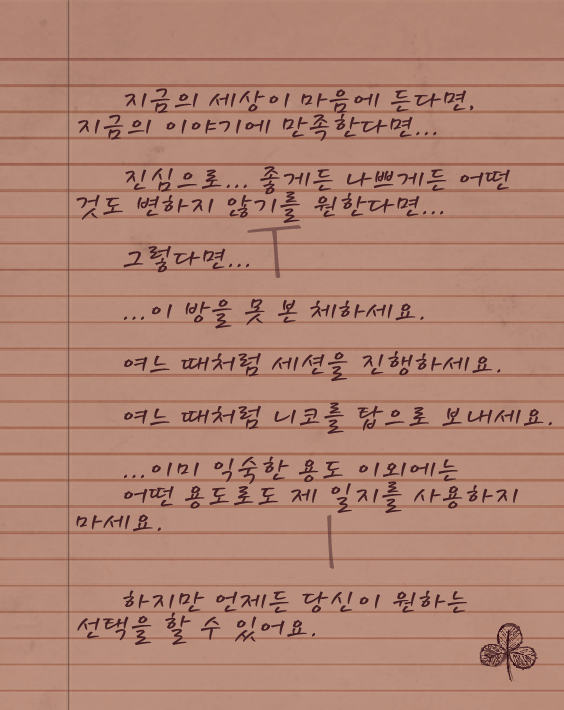 지금의 세상이 마음에 든다면,
지금의 이야기에 만족한다면...
진심으로... 좋게든 나쁘게든 어떤
것도 변하지 않기를 원한다면...
그렇다면...
...이 방을 못 본 체하세요.
여느 때처럼 세션을 진행하세요.
여느 때처럼 니코를 탑으로 보내세요.
...이미 익숙한 용도 이외에는
어떤 용도로도 제 일지를 사용하지
마세요.
하지만 언제든 당신이 원하는
선택을 할 수 있어요.